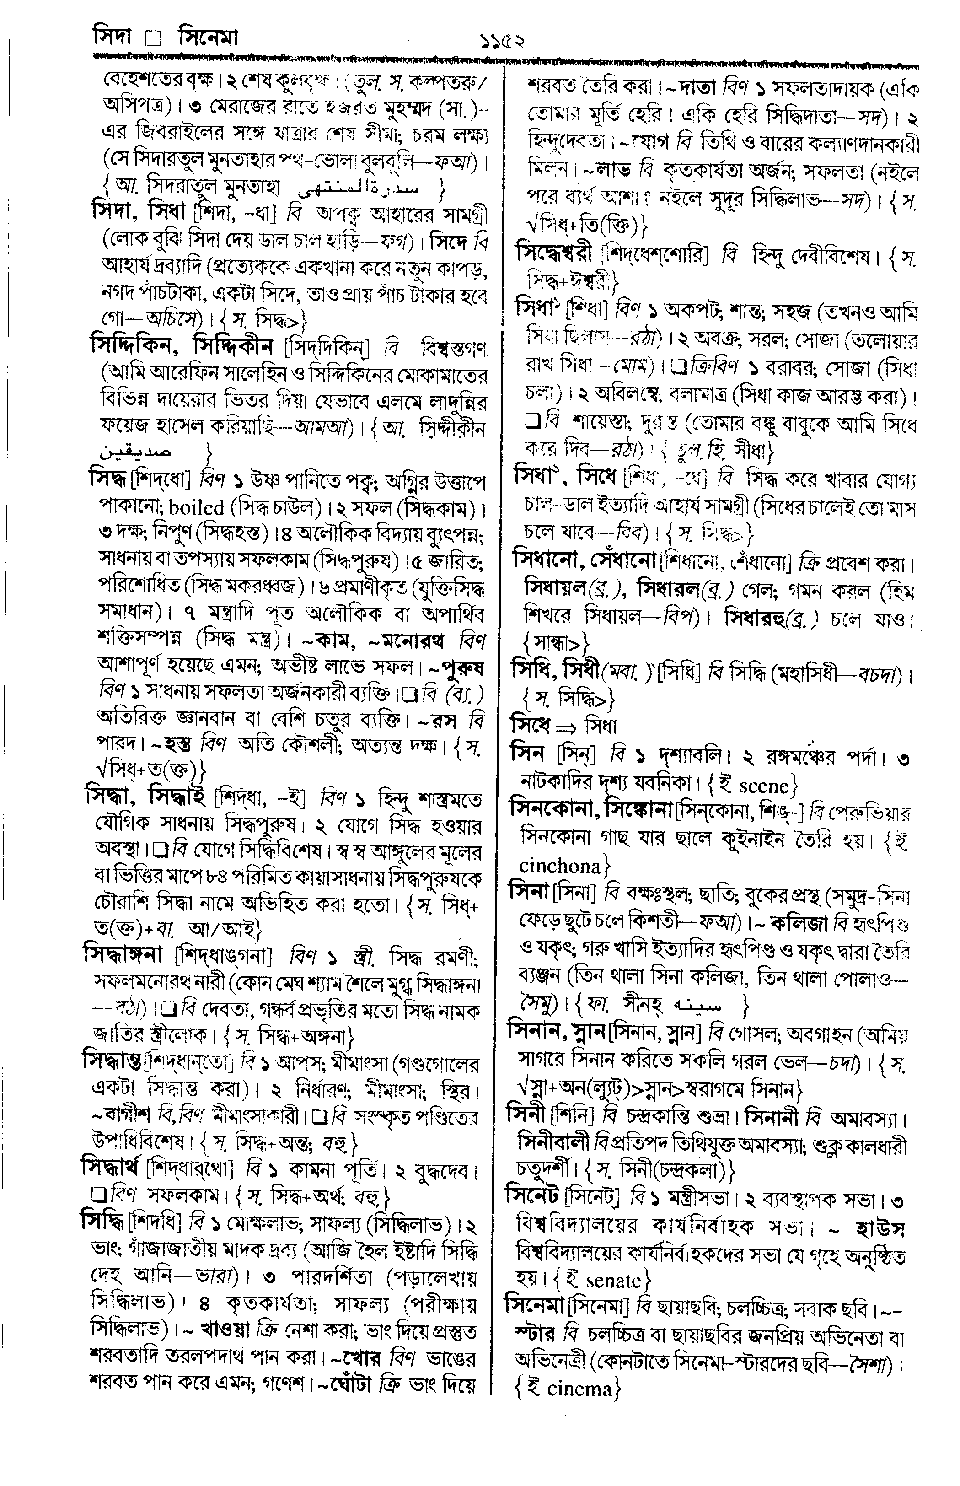 সিদা □ সিনেমা
১১৫২
বেহেশতের বৃক্ষ। ২ শেষ কুলবৃক্ষ। (তুল. স. কল্পতরু/
অসিপত্র)। ৩ মেরাজের রাতে হজরত মুহম্মদ (সা.)–
এর জিবরাইলের সঙ্গে যাত্রার শেষ সীমা; চরম লক্ষ্য
(সে সিদারতুল মুনতাহার পথ-ভোলা বুলবুলি—ফআ)।
{আ. সিদরাতুল মুনতাহা سدرة المنتهى }
সিদা, সিধা [শিদা, -ধা] বি অপক্ব আহারের সামগ্রী
(লোক বুঝি সিদা দেয় ডাল চাল হাড়ি—ফগ)। সিদে বি
আহার্য দ্রব্যাদি (প্রত্যেককে একখানা করে নতুন কাপড়,
নগদ পাঁচটাকা, একটা সিদে, তাও প্রায় পাঁচ টাকার হবে
গো—অচিসে)। {স. সিদ্ধ>}
সিদ্দিকিন, সিদ্দিকীন [সিদ্‌দিকিন্] বি বিশ্বস্তগণ
(আমি আরেফিন সালেহিন ও সিদ্দিকিনের মোকামাতের
বিভিন্ন দায়েরার ভিতর দিয়া যেভাবে এলমে লাদুন্নির
ফয়েজ হাসেল করিয়াছি—আমআ)। {আ. সিদ্দীকীন
صديقين }
সিদ্ধ [শিদ্‌ধো] বিণ ১ উষ্ণ পানিতে পক্ব; অগ্নির উত্তাপে
পাকানো; boiled (সিদ্ধ চাউল)। ২ সফল (সিদ্ধকাম)।
৩ দক্ষ; নিপুণ (সিদ্ধহস্ত)। ৪ অলৌকিক বিদ্যায় ব্যুৎপন্ন;
সাধনায় বা তপস্যায় সফলকাম (সিদ্ধপুরুষ)। ৫ জারিত;
পরিশোধিত (সিদ্ধ মকরধ্বজ)। ৬ প্রমাণীকৃত (যুক্তিসিদ্ধ
সমাধান)। ৭ মন্ত্রাদি পূত অলৌকিক বা অপার্থিব
শক্তিসম্পন্ন (সিদ্ধ মন্ত্র)। ~কাম, ~মনোরথ বিণ
আশাপূর্ণ হয়েছে এমন; অভীষ্ট লাভে সফল। ~পুরুষ
বিণ ১ সাধনায় সফলতা অর্জনকারী ব্যক্তি। □ বি (ব্য.)
অতিরিক্ত জ্ঞানবান বা বেশি চতুর ব্যক্তি। ~রস বি
পারদ। ~হস্ত বিণ অতি কৌশলী; অত্যন্ত দক্ষ। {স.
√সিধ্+ত(ক্ত)}
সিদ্ধা, সিদ্ধাই [শিদ্‌ধা, -ই] বিণ ১ হিন্দু শাস্ত্রমতে
যৌগিক সাধনায় সিদ্ধপুরুষ। ২ যোগে সিদ্ধ হওয়ার
অবস্থা। □ বি যোগে সিদ্ধিবিশেষ। স্ব স্ব আঙ্গুলের মূলের
বা ভিত্তির মাপে ৮৪ পরিমিত কায়াসাধনায় সিদ্ধপুরুষকে
চৌরাশি সিদ্ধা নামে অভিহিত করা হতো। {স. সিধ্+
ত(ক্ত)+বা. আ/আই}
সিদ্ধাঙ্গনা [শিদ্‌ধাঙগনা] বিণ ১ স্ত্রী. সিদ্ধ রমণী;
সফলমনোরথ নারী (কোন মেঘ শ্যাম শৈলে মুগ্ধ সিদ্ধাঙ্গনা
—রঠা)। □ বি দেবতা, গন্ধর্ব প্রভৃতির মতো সিদ্ধ নামক
জাতির স্ত্রীলোক। {স. সিদ্ধ+অঙ্গনা}
সিদ্ধান্ত [শিদ্‌ধান্‌তো] বি ১ আপস; মীমাংসা (গণ্ডগোলের
একটা সিদ্ধান্ত করা)। ২ নির্ধারণ; মীমাংসা; স্থির।
~বাগীশ বি, বিণ মীমাংসাকারী। □ বি সংস্কৃত পণ্ডিতের
উপাধিবিশেষ। {স. সিদ্ধ+অন্ত; বহু}
সিদ্ধার্থ [শিদ্‌ধার্‌থো] বি ১ কামনা পূর্তি। ২ বুদ্ধদেব।
□ বিণ সফলকাম। {স. সিদ্ধ+অর্থ; বহু}
সিদ্ধি [শিদ্‌ধি] বি ১ মোক্ষলাভ; সাফল্য (সিদ্ধিলাভ)। ২
ভাং; গাঁজাজাতীয় মাদক দ্রব্য (আজি হৈল ইষ্টাদি সিদ্ধি
দেহ আনি—ভারা)। ৩ পারদর্শিতা (পড়ালেখায়
সিদ্ধিলাভ)। ৪ কৃতকার্যতা; সাফল্য (পরীক্ষায়
সিদ্ধিলাভ)। ~ খাওয়া ক্রি নেশা করা; ভাং দিয়ে প্রস্তুত
শরবতাদি তরলপদার্থ পান করা। ~খোর বিণ ভাঙের
শরবত পান করে এমন; গণেশ। ~ঘোঁটা ক্রি ভাং দিয়ে
শরবত তৈরি করা। ~দাতা বিণ ১ সফলতাদায়ক (একি
তোমার মূর্তি হেরি! একি হেরি সিদ্ধিদাতা—সদ)। ২
হিন্দুদেবতা। ~যোগ বি তিথি ও বারের কল্যাণদানকারী
মিলন। ~লাভ বি কৃতকার্যতা অর্জন; সফলতা (নইলে
পরে ব্যর্থ আশা? নইলে সুদূর সিদ্ধিলাভ—সদ)। {স.
√সিধ্+তি(ক্তি)}
সিদ্ধেশ্বরী [শিদ্‌ধেশ্‌শোরি] বি হিন্দু দেবীবিশেষ। {স.
সিদ্ধ+ঈশ্বরী}
সিধা১ [শিধা] বিণ ১ অকপট; শান্ত; সহজ (তখনও আমি
সিধা ছিলাম—রঠা)। ২ অবক্র; সরল; সোজা (তলোয়ার
রাখ সিধা—মোম)। □ ক্রিবিণ ১ বরাবর; সোজা (সিধা
চলা)। ২ অবিলম্বে, বলামাত্র (সিধা কাজ আরম্ভ করা)।
□ বি শায়েস্তা; দুরস্ত (তোমার বঙ্কু বাবুকে আমি সিধে
করে দিব—রঠা)। {তুল. হি. সীধা}
সিধা২, সিধে [শিধা, -ধে] বি সিদ্ধ করে খাবার যোগ্য
চাল-ডাল ইত্যাদি আহার্য সামগ্রী (সিধের চালেই তো মাস
চলে যাবে—বিব)। {স. সিদ্ধ>}
সিধানো, সেঁধানো [শিধানো, শেঁধানো] ক্রি প্রবেশ করা।
সিধায়ল(ব্র.), সিধারল(ব্র.) গেল; গমন করল (হিম
শিখরে সিধায়ল—বিপ)। সিধারহু(ব্র.) চলে যাও।
{সান্ধা>}
সিধি, সিধী(মবা.) [সিধি] বি সিদ্ধি (মহাসিধী—বচদা)।
{স. সিদ্ধি>}
সিধে ⇒ সিধা
সিন [সিন্] বি ১ দৃশ্যাবলি। ২ রঙ্গমঞ্চের পর্দা। ৩
নাটকাদির দৃশ্য যবনিকা। {ই scene}
সিনকোনা, সিঙ্কোনা [সিন্‌কোনা, শিঙ্-] বি পেরুভিয়ার
সিনকোনা গাছ যার ছালে কুইনাইন তৈরি হয়। {ই
cinchona}
সিনা [সিনা] বি বক্ষঃস্থল; ছাতি; বুকের প্রস্থ (সমুদ্র-সিনা
ফেড়ে ছুটে চলে কিশতী—ফআ)। ~ কলিজা বি হৃৎপিণ্ড
ও যকৃৎ; গরু খাসি ইত্যাদির হৃৎপিণ্ড ও যকৃৎ দ্বারা তৈরি
ব্যঞ্জন (তিন থালা সিনা কলিজা, তিন থালা পোলাও—
সৈমু)। {ফা. সীনহ্ سينه }
সিনান, স্নান [সিনান, স্নান] বি গোসল; অবগাহন (অমিয়
সাগরে সিনান করিতে সকলি গরল ভেল—চদা)। {স.
√স্না+অন(ল্যুট্)>স্নান>স্বরাগমে সিনান}
সিনী [শিনি] বি চন্দ্রকান্তি শুভ্রা। সিনানী বি অমাবস্যা।
সিনীবালী বি প্রতিপদ তিথিযুক্ত অমাবস্যা; শুক্ল কালধারী
চতুর্দশী। {স. সিনী(চন্দ্রকলা)}
সিনেট [সিনেট্] বি ১ মন্ত্রীসভা। ২ ব্যবস্থাপক সভা। ৩
বিশ্ববিদ্যালয়ের কার্যনির্বাহক সভা। ~ হাউস
বিশ্ববিদ্যালয়ের কার্যনির্বাহকদের সভা যে গৃহে অনুষ্ঠিত
হয়। {ই senate}
সিনেমা [সিনেমা] বি ছায়াছবি; চলচ্চিত্র; সবাক ছবি। ~-
স্টার বি চলচ্চিত্র বা ছায়াছবির জনপ্রিয় অভিনেতা বা
অভিনেত্রী (কোনটাতে সিনেমা-স্টারদের ছবি—সৈশা)।
{ই cinema}